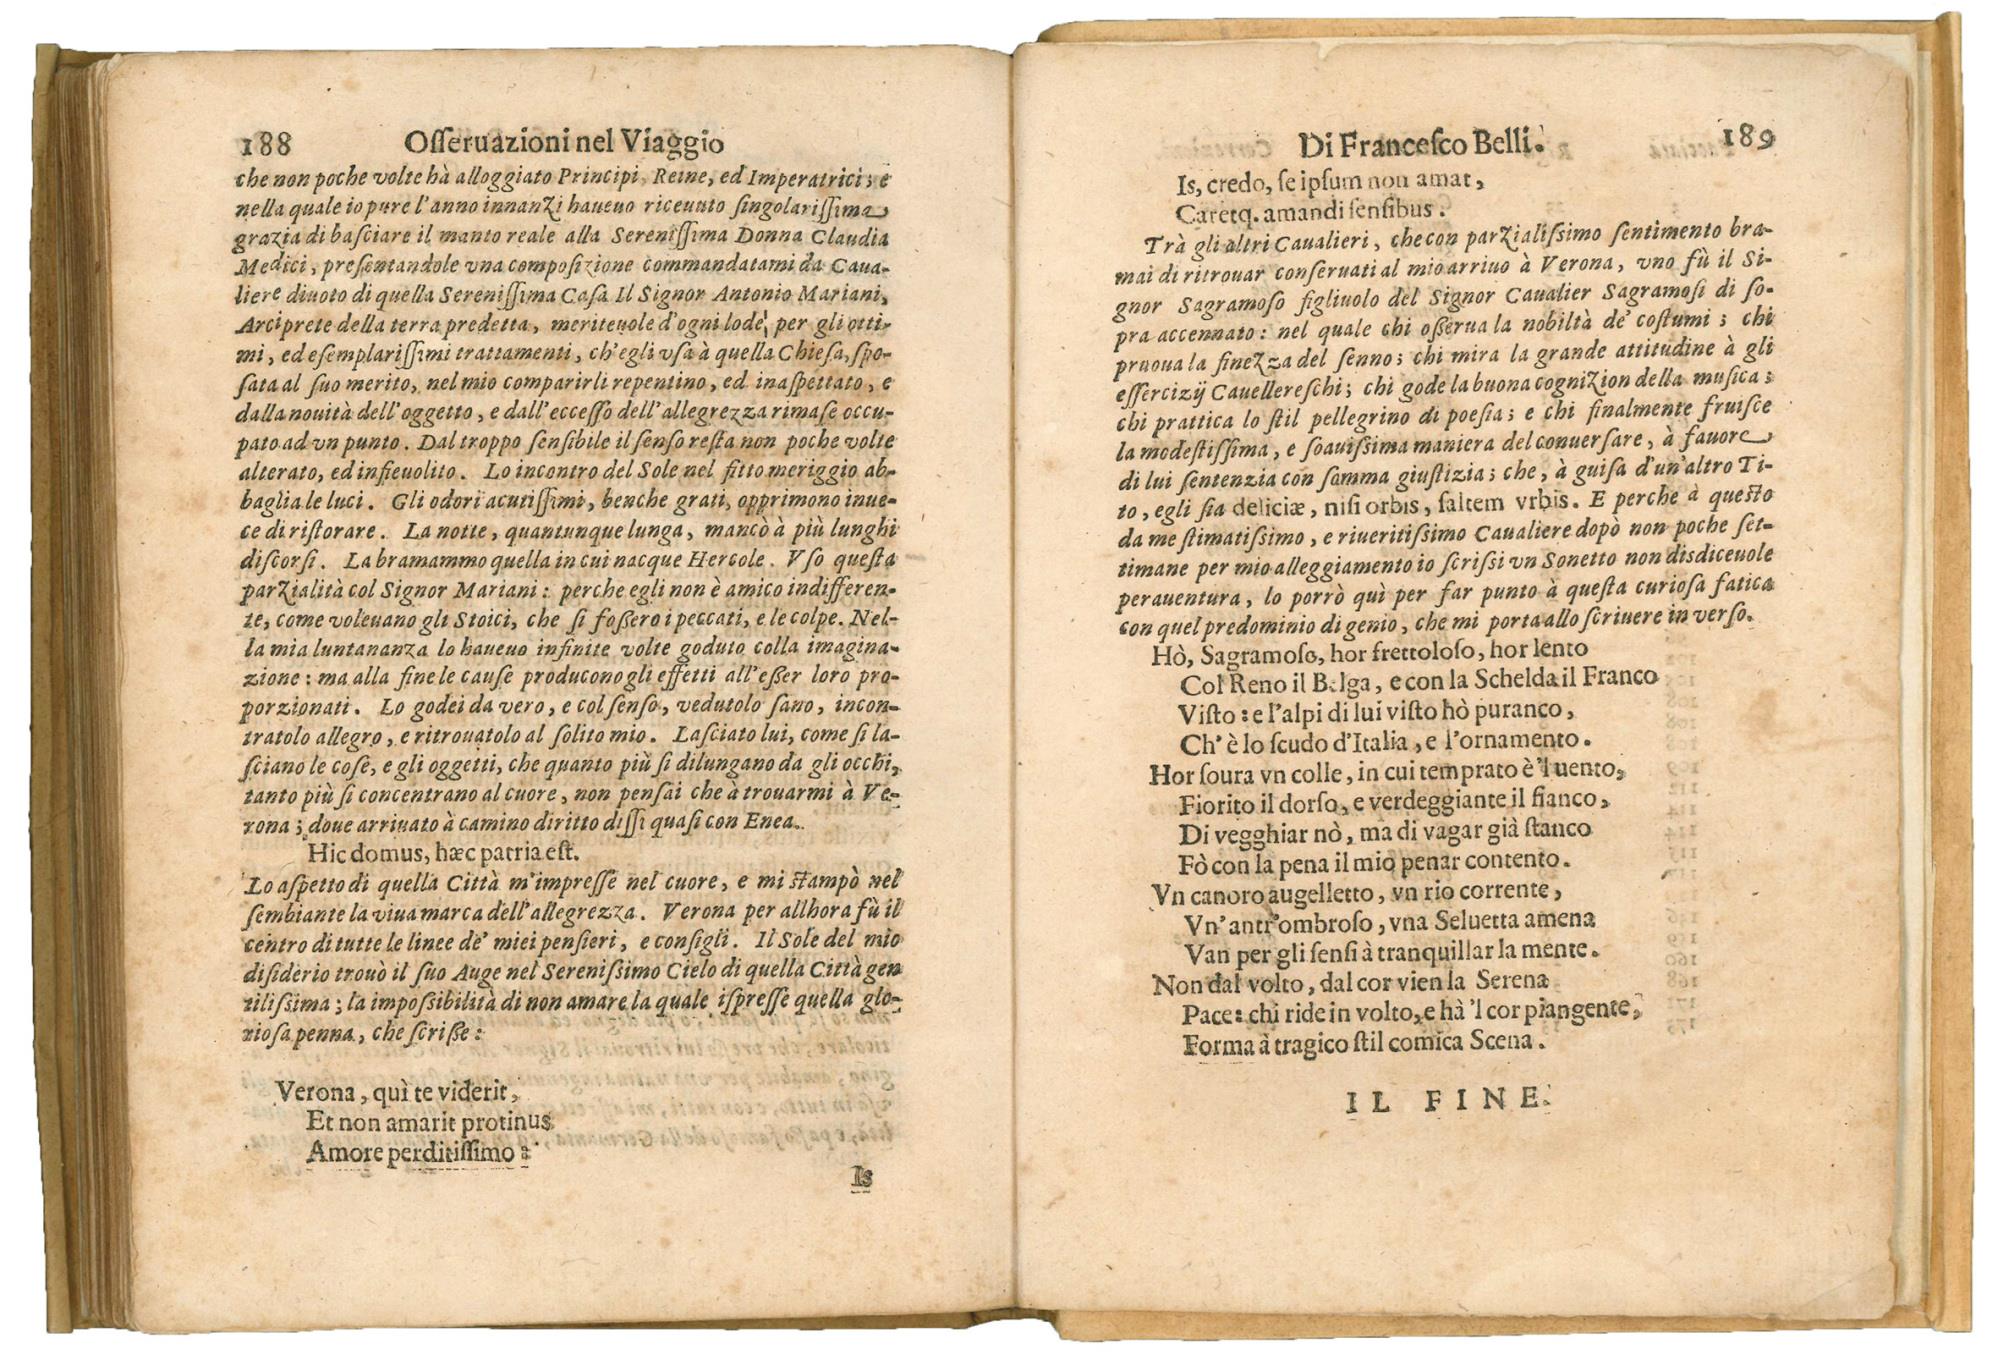 188 Oſſeruazioni nel Viaggio
che non poche volte hà alloggiato Principi, Reine, ed Imperatrici; e
nella quale io pure l'anno innanzi haueuo riceuuto ſingolariſſima
grazia di baſciare il manto reale alla Sereniſſima Donna Claudia
Medici, preſentandole vna compoſizione commandatami da Caua-
liere diuoto di quella Sereniſſima Caſa Il Signor Antonio Mariani,
Arciprete della terra predetta, meriteuole d'ogni lode, per gli otti-
mi, ed eſemplariſſimi trattamenti, ch'egli vſa à quella Chieſa, ſpo-
ſata al ſuo merito, nel mio comparirli repentino, ed inaſpettato, e
dalla nouità dell'oggetto, e dall'ecceſſo dell'allegrezza rimaſe occu-
pato ad vn punto. Dal troppo ſenſibile il ſenſo reſta non poche volte
alterato, ed infieuolito. Lo incontro del Sole nel fitto meriggio ab-
baglia le luci. Gli odori acutiſſimi, benche grati, opprimono inue-
ce di riſtorare. La notte, quantunque lunga, mancò à più lunghi
diſcorſi. La bramammo quella in cui nacque Hercole. Vſo queſta
parzialità col Signor Mariani: perche egli non è amico indifferen-
te, come voleuano gli Stoici, che ſi foßero i peccati, e le colpe. Nel-
la mia luntananza lo haueuo infinite volte goduto colla imagina-
zione: ma alla fine le cauſe producono gli effetti all'eßer loro pro-
porzionati. Lo godei da vero, e col ſenſo, vedutolo ſano, incon-
tratolo allegro, e ritrouatolo al ſolito mio. Laſciato lui, come ſi la-
ſciano le coſe, e gli oggetti, che quanto più ſi dilungano da gli occhi,
tanto più ſi concentrano al cuore, non penſai che à trouarmi à Ve-
rona; doue arriuato à camino diritto diſſi quaſi con Enea.
Hic domus, hæc patria eſt.
Lo aſpetto di quella Città m'impreſſe nel cuore, e mi ſtampò nel
ſembiante la viua marca dell'allegrezza. Verona per allhora fù il
centro di tutte le linee de' miei penſieri, e conſigli. Il Sole del mio
diſiderio trouò il ſuo Auge nel Sereniſſimo Cielo di quella Città gen
tiliſſima; la impoſſibilità di non amare la quale iſpreſſe quella glo-
rioſa penna, che ſcriße:
Verona, quì te viderit,
Et non amarit protinus
Amore perditiſſimo:
Is
Di Franceſco Belli. 189
Is, credo, ſe ipſum non amat,
Caretq. amandi ſenſibus.
Trà gli altri Caualieri, che con parzialiſſimo ſentimento bra-
mai di ritrouar conſeruati al mio arriuo à Verona, vno fù il Si-
gnor Sagramoſo figliuolo del Signor Caualier Sagramoſi di ſo-
pra accennato: nel quale chi oßerua la nobiltà de' coſtumi; chi
pruoua la finezza del ſenno; chi mira la grande attitudine à gli
eſſercizij Cauellereſchi; chi gode la buona cognizion della muſica;
chi prattica lo ſtil pellegrino di poeſia; e chi finalmente fruiſce
la modeſtiſſima, e ſoauiſſima maniera del conuerſare, à fauore
di lui ſentenzia con ſomma giuſtizia; che, à guiſa d'un'altro Ti-
to, egli ſia deliciæ, niſi orbis, ſaltem vrbis. E perche à queſto
da me ſtimatiſſimo, e riueritiſſimo Caualiere dopò non poche ſet-
timane per mio alleggiamento io ſcriſſi vn Sonetto non diſdiceuole
perauentura, lo porrò quì per far punto à queſta curioſa fatica
con quel predominio di genio, che mi porta allo ſcriuere in verſo.
Hò, Sagramoſo, hor frettoloſo, hor lento
Col Reno il Belga, e con la Schelda il Franco
Viſto: e l'alpi di lui viſto hò puranco,
Ch' è lo ſcudo d'Italia, e l'ornamento.
Hor ſoura vn colle, in cui temprato è 'l uento,
Fiorito il dorſo, e verdeggiante il fianco,
Di vegghiar nò, ma di vagar già ſtanco
Fò con la pena il mio penar contento.
Vn canoro augelletto, vn rio corrente,
Vn' antr' ombroſo, vna Seluetta amena
Van per gli ſenſi à tranquillar la mente.
Non dal volto, dal cor vien la Serena
Pace: chi ride in volto, e hà 'l cor piangente,
Forma à tragico ſtil comica Scena.
IL FINE.